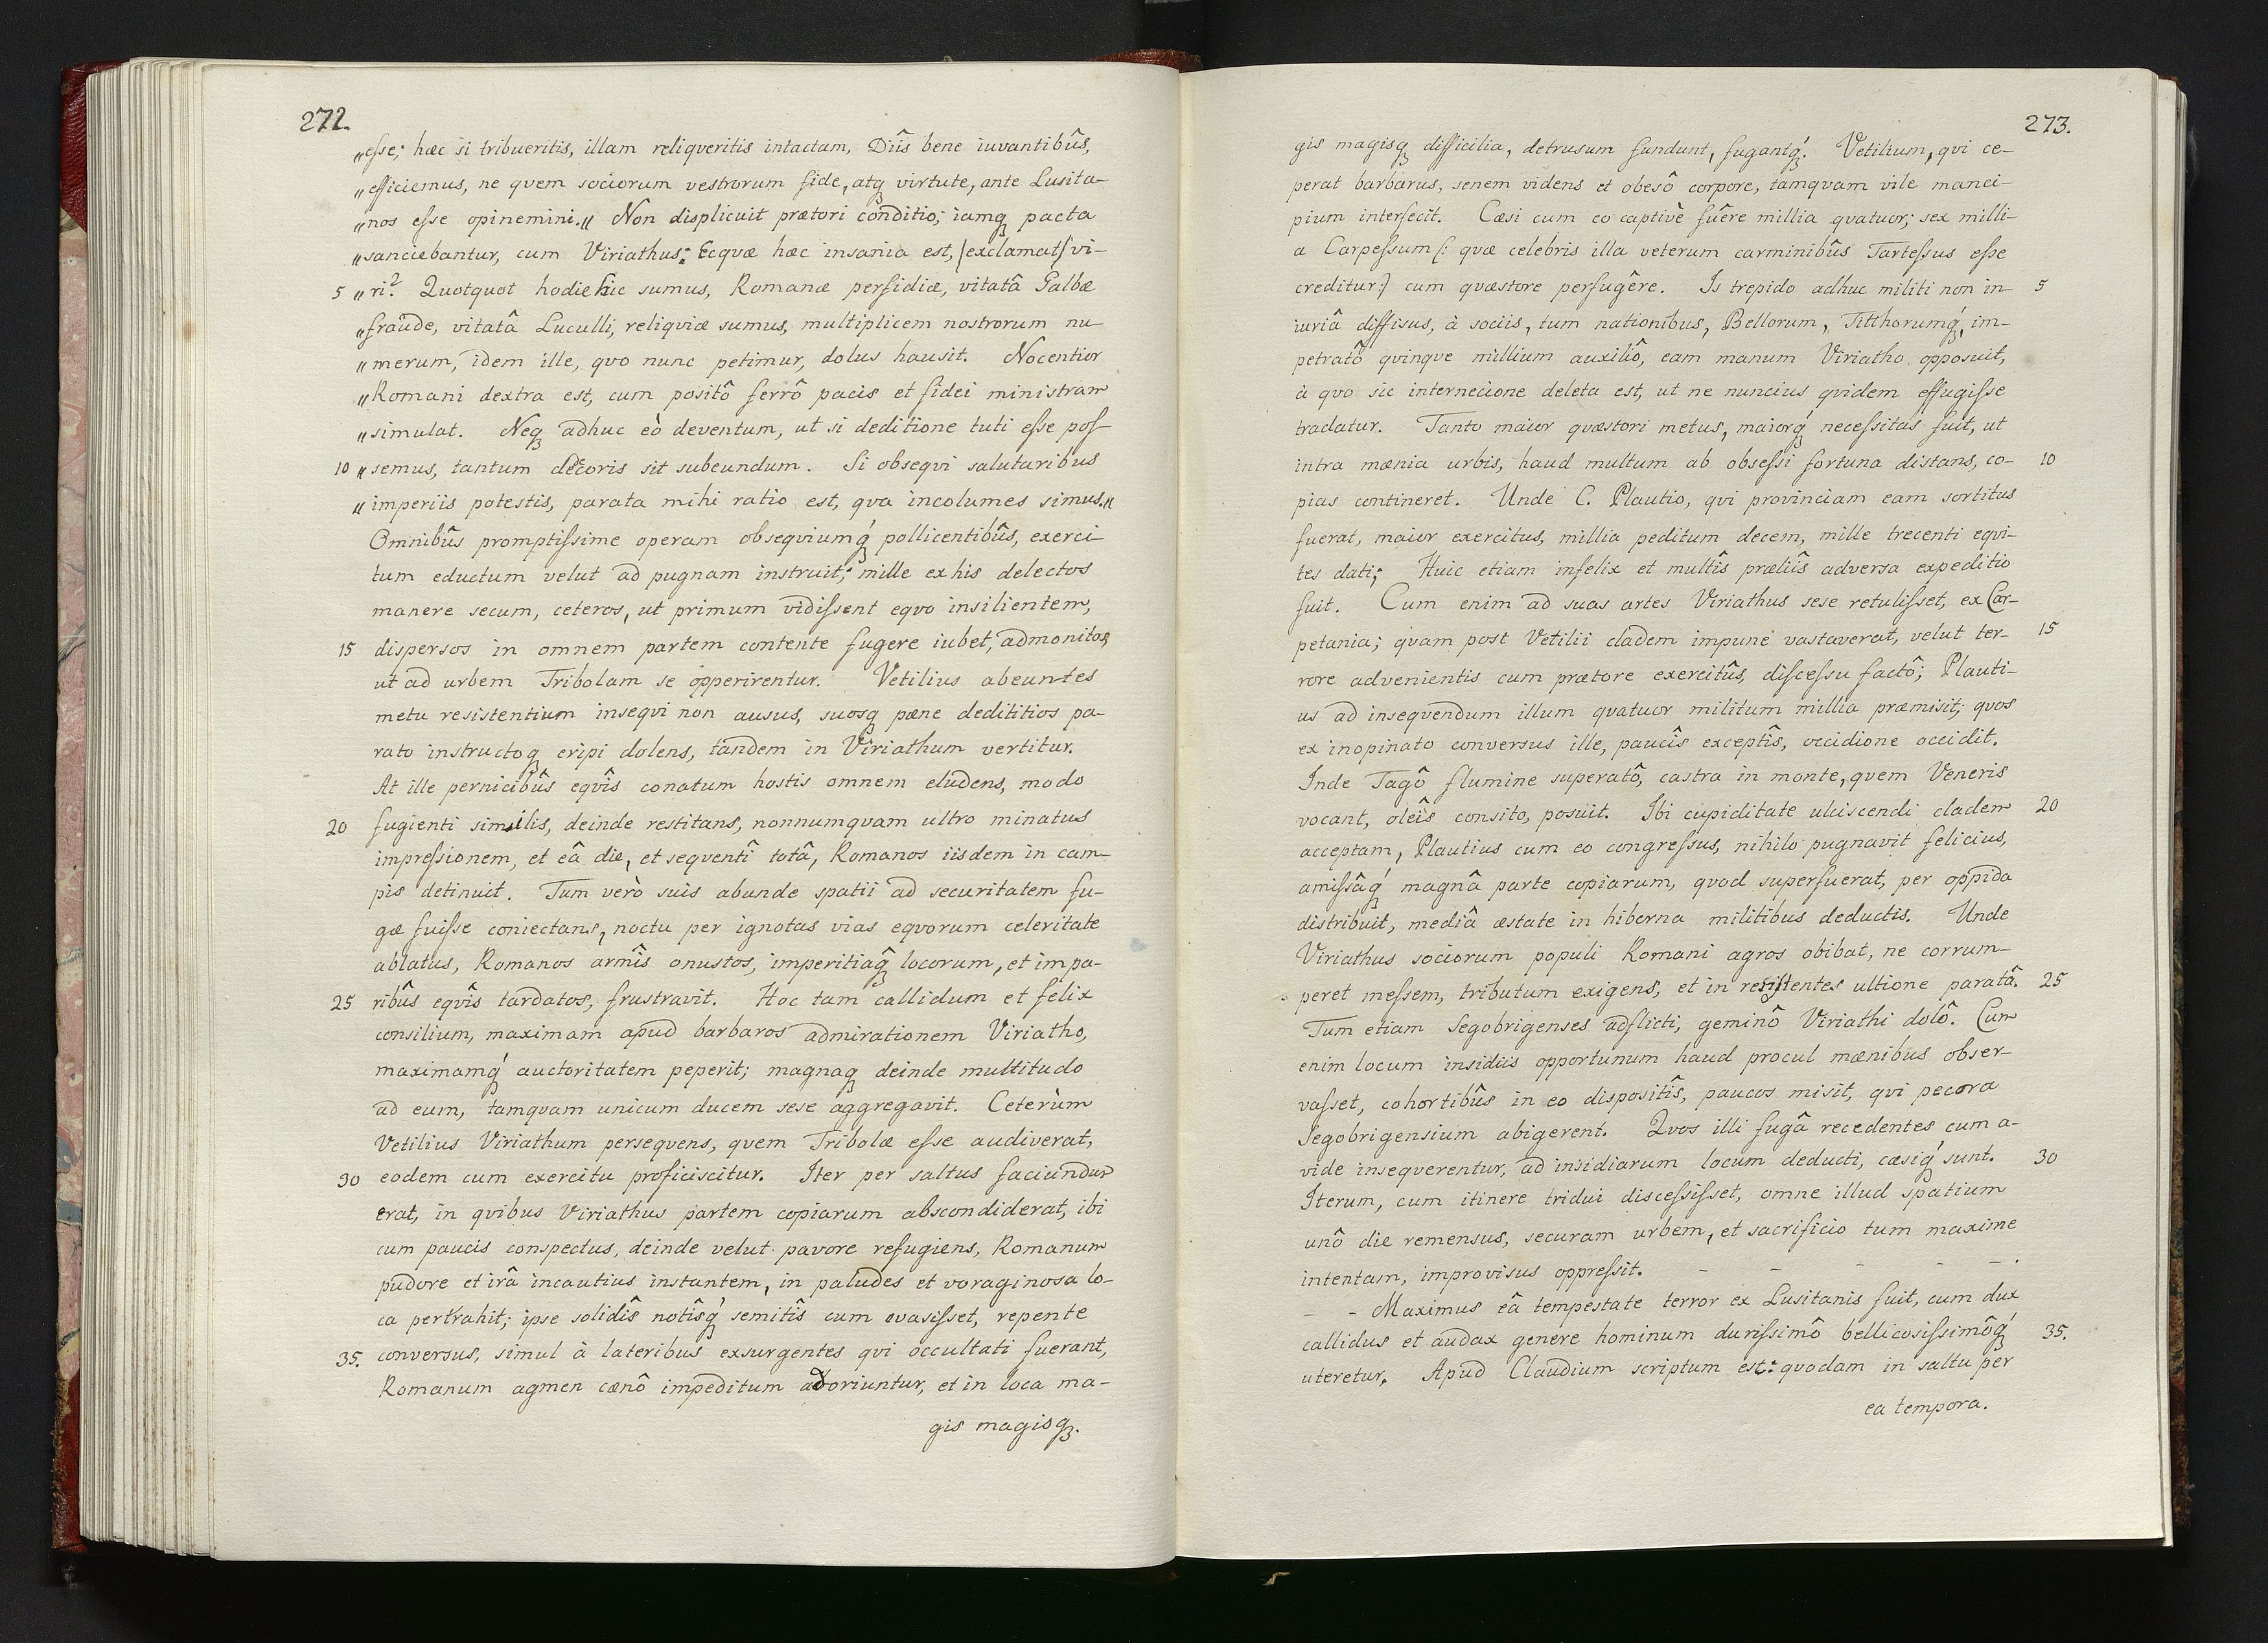 272.
„esse; hæc si tribueritis, illam reliqveritis intactam, Diîs bene iuvantibûs,
„efficiemus, ne qvem sociorum vestrorum fide, atq virtute, ante Lusita-
„nos esse opinemini.„ Non displicuit prætori conditio; iamq pacta
„sanciebantur, cum Viriathus: Ecqvæ hæc insania est, (exclamat) vi-
5 „ri? Quotquot hodie hic sumus, Romanæ perfidiæ, vitatâ Galbæ
„fraude, vitatâ Luculli, reliqviæ sumus, multiplicem nostrorum nu-
„merum, idem ille, qvo nunc petimur, dolus hausit. Nocentior
„Romani dextra est, cum positô ferrô pacis et fidei ministram
„simulat. Neq adhuc eò deventum, ut si deditione tuti esse pos-
10 „semus, tantum decoris sit subeundum. Si obseqvi salutaribus
„imperiis potestis, parata mihi ratio est, qva incolumes simus.„
Omnibûs promptissime operam obseqviumq́ pollicentibûs, exerci-
tum eductum velut ad pugnam instruit; mille ex his delectos
manere secum, ceteros, ut primum vidissent eqvo insilientem,
15 dispersos in omnem partem contente fugere iubet, admonitos,
ut ad urbem Tribolam se opperirentur. Vetilius abeuntes
metu resistentium inseqvi non ausus, suosq pæne dedititios pa-
rato instructoq eripi dolens, tandem in Viriathum vertitur.
At ille pernicibûs eqvîs conatum hostis omnem eludens, modo
20 fugienti similis, deinde restitans, nonnumquam ultro minatus
impressionem, et eâ die, et seqventî totâ, Romanos iisdem in cam-
pis detinuit. Tum verò suis abunde spatii ad securitatem fu-
gæ fuisse coniectans, noctu per ignotas vias eqvorum celeritate
ablatus, Romanos armîs onustos, imperitiaq̂ locorum, et impa-
25 ribûs eqvîs tardatos, frustravit. Hoc tam callidum et felix
consilium, maximam apud barbaros admirationem Viriatho,
maximamq́ auctoritatem peperit; magnaq deinde multitudo
ad eum, tamqvam unicum ducem sese aggregavit. Ceterùm
Vetilius Viriathum perseqvens, qvem Tribolæ esse audiverat,
30 eodem cum exercitu proficiscitur. Iter per saltus faciundum
erat, in qvibus Viriathus partem copiarum abscondiderat, ibi
cum paucis conspectus, deinde velut pavore refugiens, Romanum
pudore et irâ incautius instantem, in paludes et voraginosa lo-
ca pertrahit; ipse solidîs notîsq́ semitîs cum evasisset, repente
35. conversus, simul à lateribus exsurgentes qvi occultati fuerant,
Romanum agmen cænô impeditum adoriuntur, et in loca ma-
gis magisq.
273.
gis magisq difficilia, detrusum fundunt, fugantq́. Vetilium, qvi ce-
perat barbarus, senem videns et obesô corpore, tamqvam vile manci-
pium interfecit. Cæsi cum eo captivè fuêre millia qvatuor; sex milli-
a Carpessum (: qvæ celebris illa veterum carminibûs Tartessus esse
creditur:) cum qvæstore perfugêre. Is trepido adhuc militi non in- 5
iuriâ diffisus, à sociis, tum nationibus, Bellorum, Titthorumq́, im-
petratô qvinqve millium auxiliô, eam manum Viriatho opposuit,
à qvo sic internecione deleta est, ut ne nuncius qvidem effugisse
tradatur. Tanto maior qvæstori metus, maiorq́ necessitas fuit, ut
intra mænia urbis, haud multum ab obsessi fortuna distans, co- 10
pias contineret. Unde C. Plautio, qvi provinciam eam sortitus
fuerat, maior exercitus, millia peditum decem, mille trecenti eqvi-
tes dati; Huic etiam infelix et multîs præliîs adversa expeditio
fuit. Cum enim ad suas artes Viriathus sese retulisset, ex Car-
petania; qvam post Vetilii cladem impunè vastaverat, velut ter- 15
rore advenientis cum prætore exercitûs, discessu factô; Plauti-
us ad inseqvendum illum qvatuor militum millia præmisit; qvos
ex inopinato conversus ille, paucîs exceptîs, occidione occidit.
Inde Tagô flumine superatô, castra in monte, qvem Veneris
vocant, oleîs consito, posuit. Ibi cupiditate ulciscendi cladem 20
acceptam, Plautius cum eo congressus, nihilo pugnavit felicius,
amissâq́ magnâ parte copiarum, qvod superfuerat, per oppida
distribuit, mediâ æstate in hiberna militibus deductis. Unde
Viriathus sociorum populi Romani agros obibat, ne corrum-
peret messem, tributum exigens, et in resistentes ultione paratâ. 25
Tum etiam Segobrigenses adflicti, geminô Viriathi dolô. Cum
enim locum insidiis opportunum haud procul mænibus obser-
vasset, cohortibûs in eo dispositîs, paucos misit, qvi pecora
Segobrigensium abigerent. Qvos illi fugâ recedentes cum a-
vide inseqverentur, ad insidiarum locum deducti, cæsiq́ sunt. 30
Iterum, cum itinere tridui discessisset, omne illud spatium
unô die remensus, securam urbem, et sacrificio tum maxime
intentam, improvisus oppressit. - - - - - .
- - Maximus eâ tempestate terror ex Lusitanis fuit, cum dux
callidus et audax genere hominum durissimô bellicosissimôq́ 35.
uteretur. Apud Claudium scriptum est: qvodam in saltu per
ea tempora.